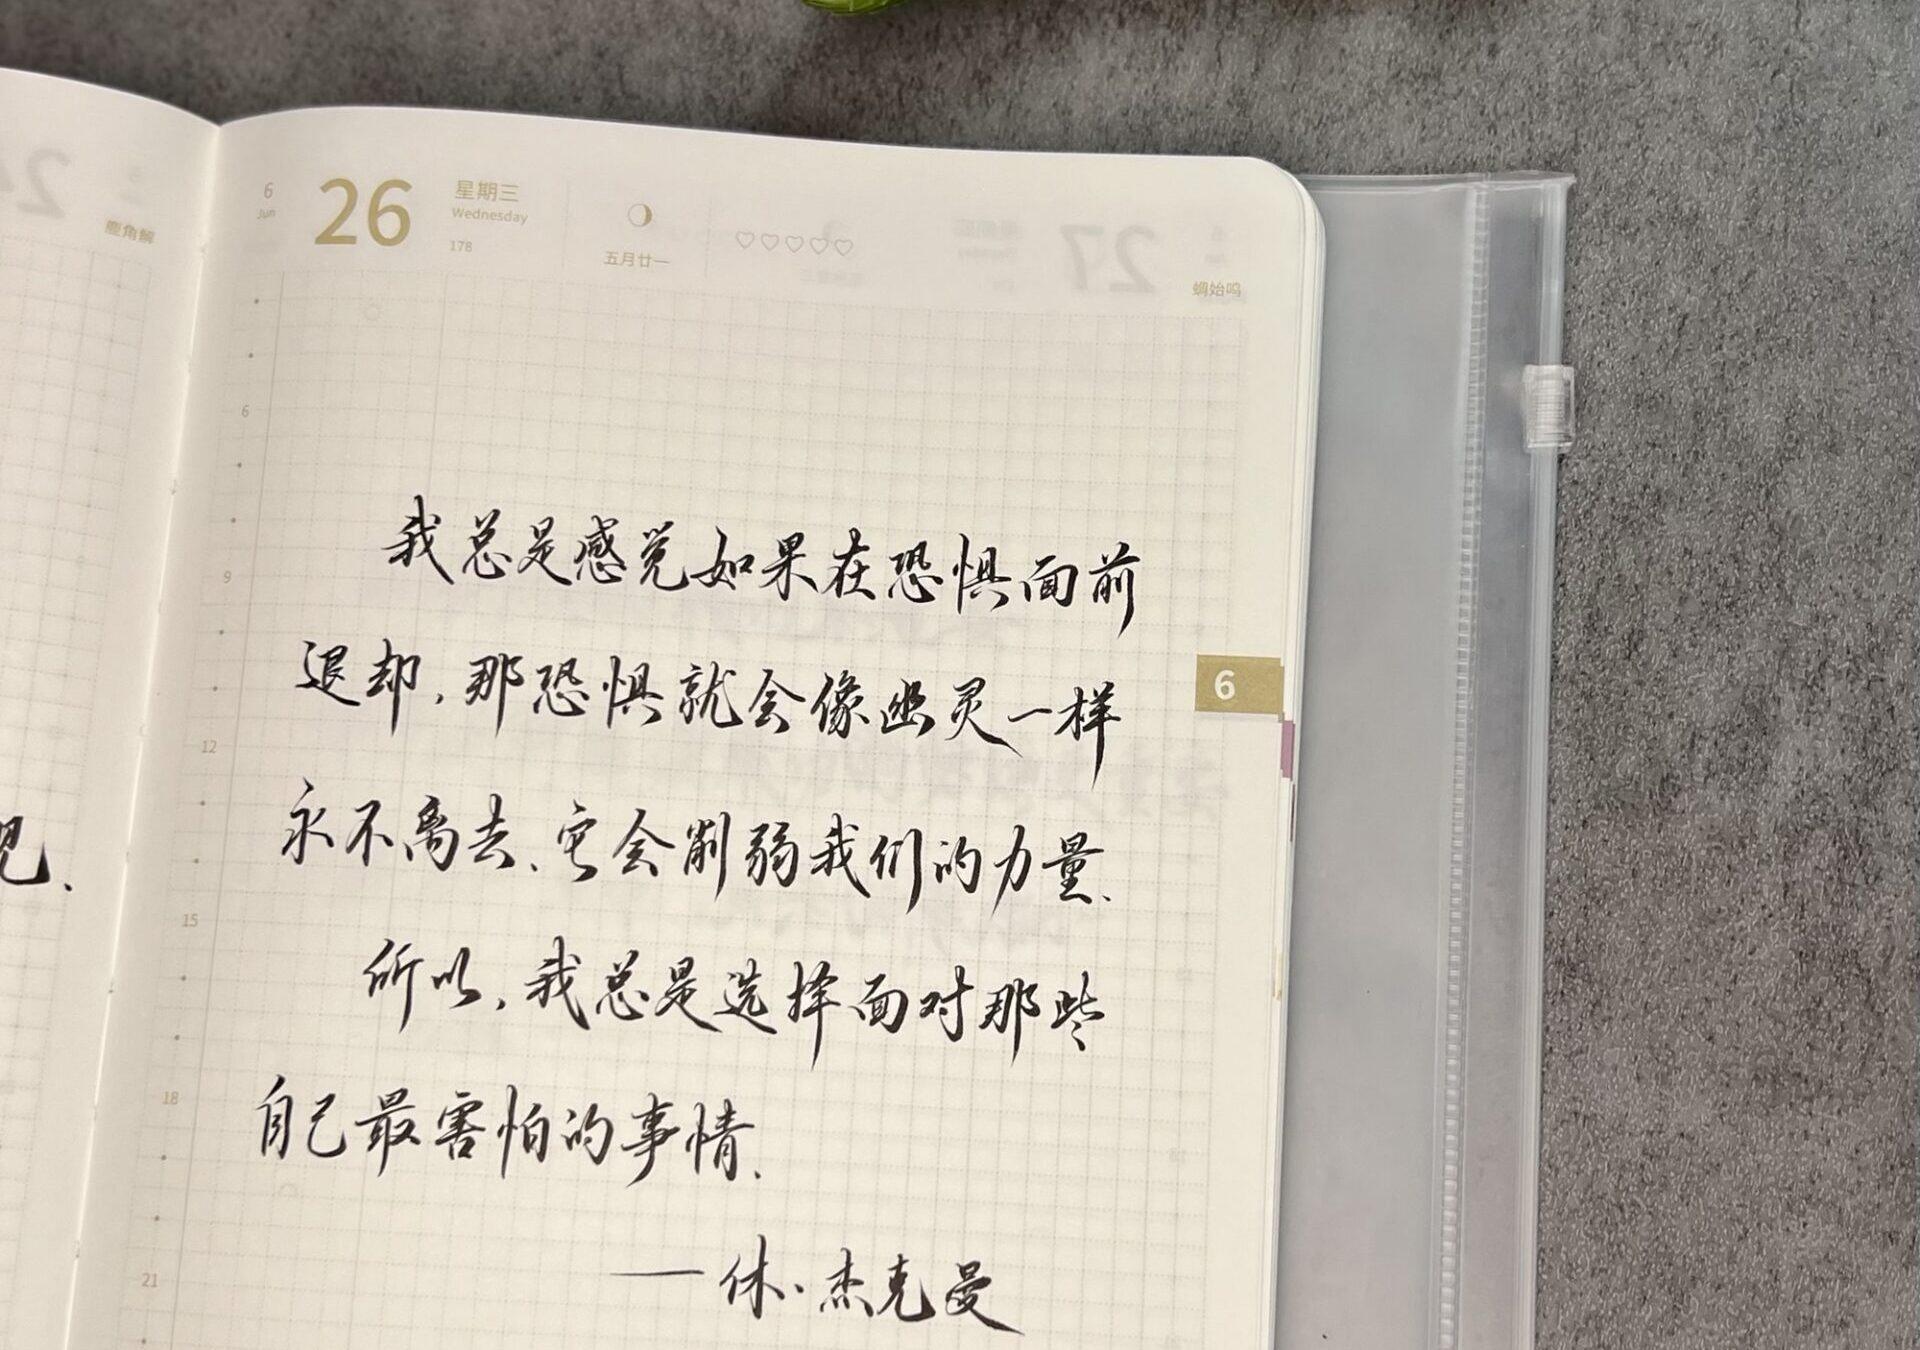 6
Jun
26
星期三
Wednesday
178
五月廿一
蜩始鸣
鹿角解
6
9
12
15
18
21
6
我总是感觉如果在恐惧面前
退却,那恐惧就会像幽灵一样
永不离去.它会削弱我们的力量.
所以,我总是选择面对那些
自己最害怕的事情.
——休·杰克曼